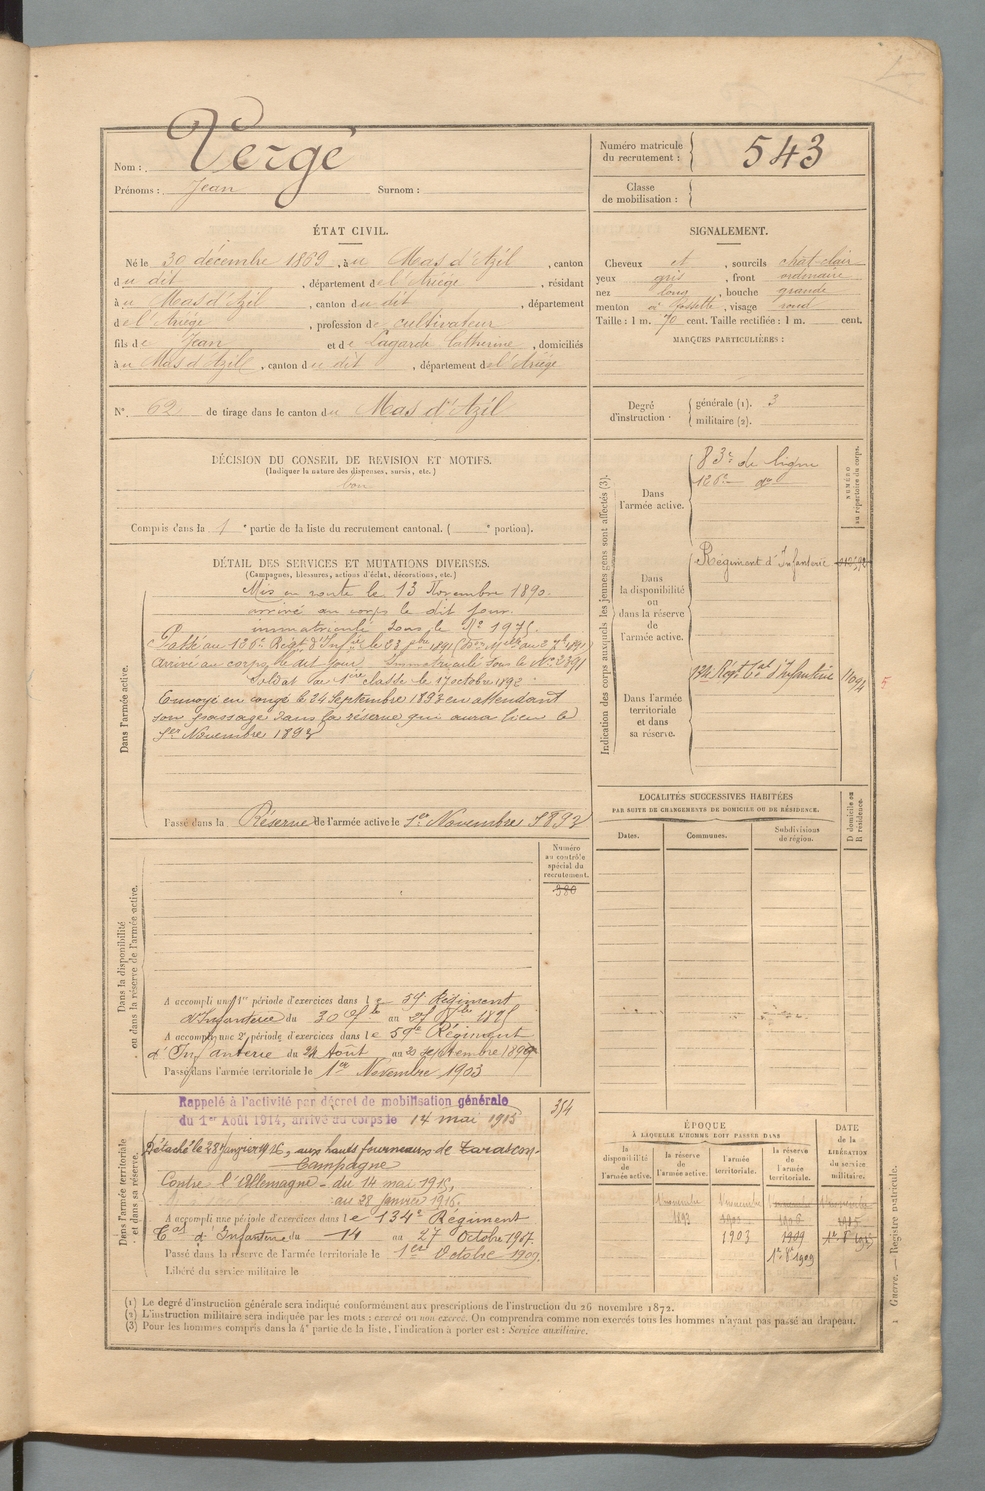 Nom : Vergé
Prénoms : Jean Surnom :
Numéro matricule du recrutement : 543
Classe de mobilisation :
ÉTAT CIVIL.
Né le 30 décembre 1869, à u Mas d'Azil, canton
d u dit, département de l'Ariége, résidant
à u Mas d'Azil, canton du dit, département
de l'Ariége, profession de cultivateur
fils de Jean et de Lagarde Catherine, domiciliés
à u Mas d'Azil, canton du dit, département de l'Ariége
SIGNALEMENT.
Cheveux et, sourcils chat-clair
yeux gris, front ordinaire
nez long, bouche grande
menton à fossette, visage rond
Taille : 1 m. 70 cent. Taille rectifiée : 1 m. cent.
MARQUES PARTICULIÈRES :
N° 62 de tirage dans le canton du Mas d'Azil
Degré d'instruction : générale (1). 3
militaire (2).
DÉCISION DU CONSEIL DE REVISION ET MOTIFS.
(Indiquer la nature des dispenses, sursis, etc.)
bon
Compris dans la 1e partie de la liste du recrutement cantonal. ( e portion).
DÉTAIL DES SERVICES ET MUTATIONS DIVERSES.
(Campagnes, blessures, actions d'éclat, décorations, etc.)
Dans l'armée active.
Mis en route le 13 Novembre 1890.
arrivé au corps le dit jour.
immatriculé sous le N° 1975.
Passé au 126e Régt d'Infie le 1891
Arrivé au corps le dit jour Immatriculé sous le N° 2391
Soldat de 1ère classe le 17 octobre 1892
Envoyé en congé le 24 Septembre 1893 en attendant
son passage dans la réserve qui aura lieu le
1er Novembre 1893
Passé dans la Réserve de l'armée active le 1er Novembre 1893
Indication des corps auxquels les jeunes gens sont affectés (3).
NUMÉRO au répertoire du corps.
Dans l'armée active.
83e de ligne
126e do
Dans la disponibilité ou dans la réserve de l'armée active.
Régiment d'Infanterie
Dans l'armée territoriale et dans sa réserve.
134e Régt Tal d'Infanterie
5
LOCALITÉS SUCCESSIVES HABITÉES
PAR SUITE DE CHANGEMENTS DE DOMICILE OU DE RÉSIDENCE.
Dates. Communes. Subdivisions de région. D domicile ou R résidence.
Dans la disponibilité ou dans la réserve de l'armée active.
Numéro au contrôle spécial du recrutement.
380
A accompli une 1re période d'exercices dans le 59e Régiment
d'Infanterie du 30 au 1895
A accompli une 2e période d'exercices dans le 59e Régiment
d'Infanterie du 24 Août au 20 septembre 1899
Passé dans l'armée territoriale le 1er Novembre 1903
Dans l'armée territoriale et dans sa réserve.
354
Rappelé à l'activité par décret de mobilisation générale
du 1er Août 1914, arrivé au corps le 14 mai 1915
Détaché le 28 janvier 1916, aux hauts fourneaux de Tarascon.
Campagne
Contre l'Allemagne du 14 mai 1915,
au 28 janvier 1916.
A accompli une période d'exercices dans le 134e Régiment
Tal d'Infanterie du 14 au 27 Octobre 1907.
Passé dans la réserve de l'armée territoriale le 1er Octobre 1909.
Libéré du service militaire le
ÉPOQUE
À LAQUELLE L'HOMME DOIT PASSER DANS
la disponibilité de l'armée active.
la réserve de l'armée active.
l'armée territoriale.
la réserve de l'armée territoriale.
DATE de la LIBÉRATION du service militaire.
1893
1903
1909
1er 8e 1909
(1) Le degré d'instruction générale sera indiqué conformément aux prescriptions de l'instruction du 26 novembre 1872.
(2) L'instruction militaire sera indiquée par les mots : exercé ou non exercé. On comprendra comme non exercés tous les hommes n'ayant pas passé au drapeau.
(3) Pour les hommes compris dans la 4e partie de la liste, l'indication à porter est : Service auxiliaire.
1 Guerre. — Registre matricule.